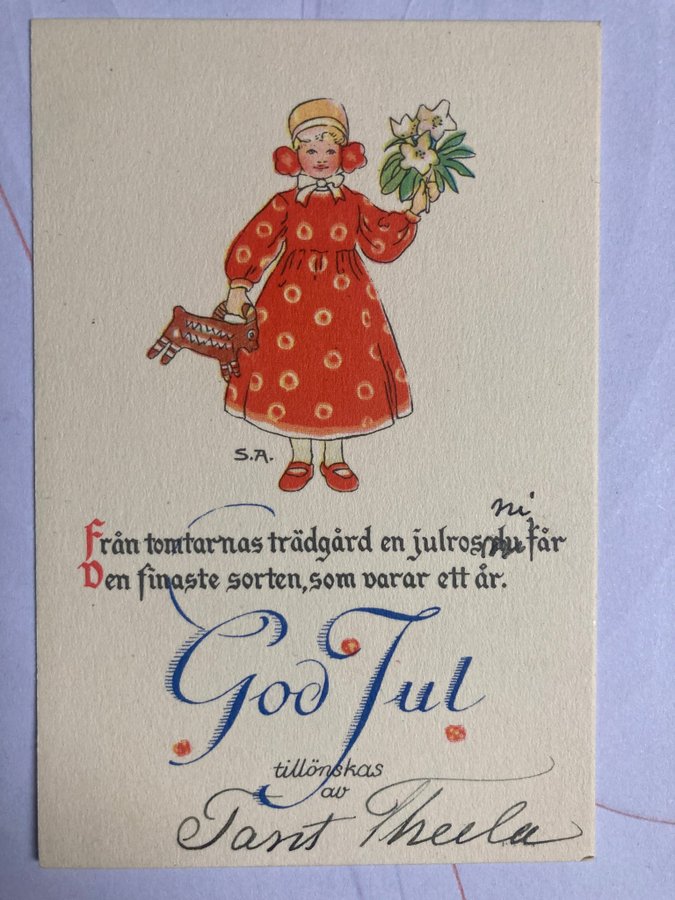 S.A.
ni
Från tomtarnas trädgård en julros du får
Den finaste sorten, som varar ett år.
God Jul
tillönskas
av
Tant Theela